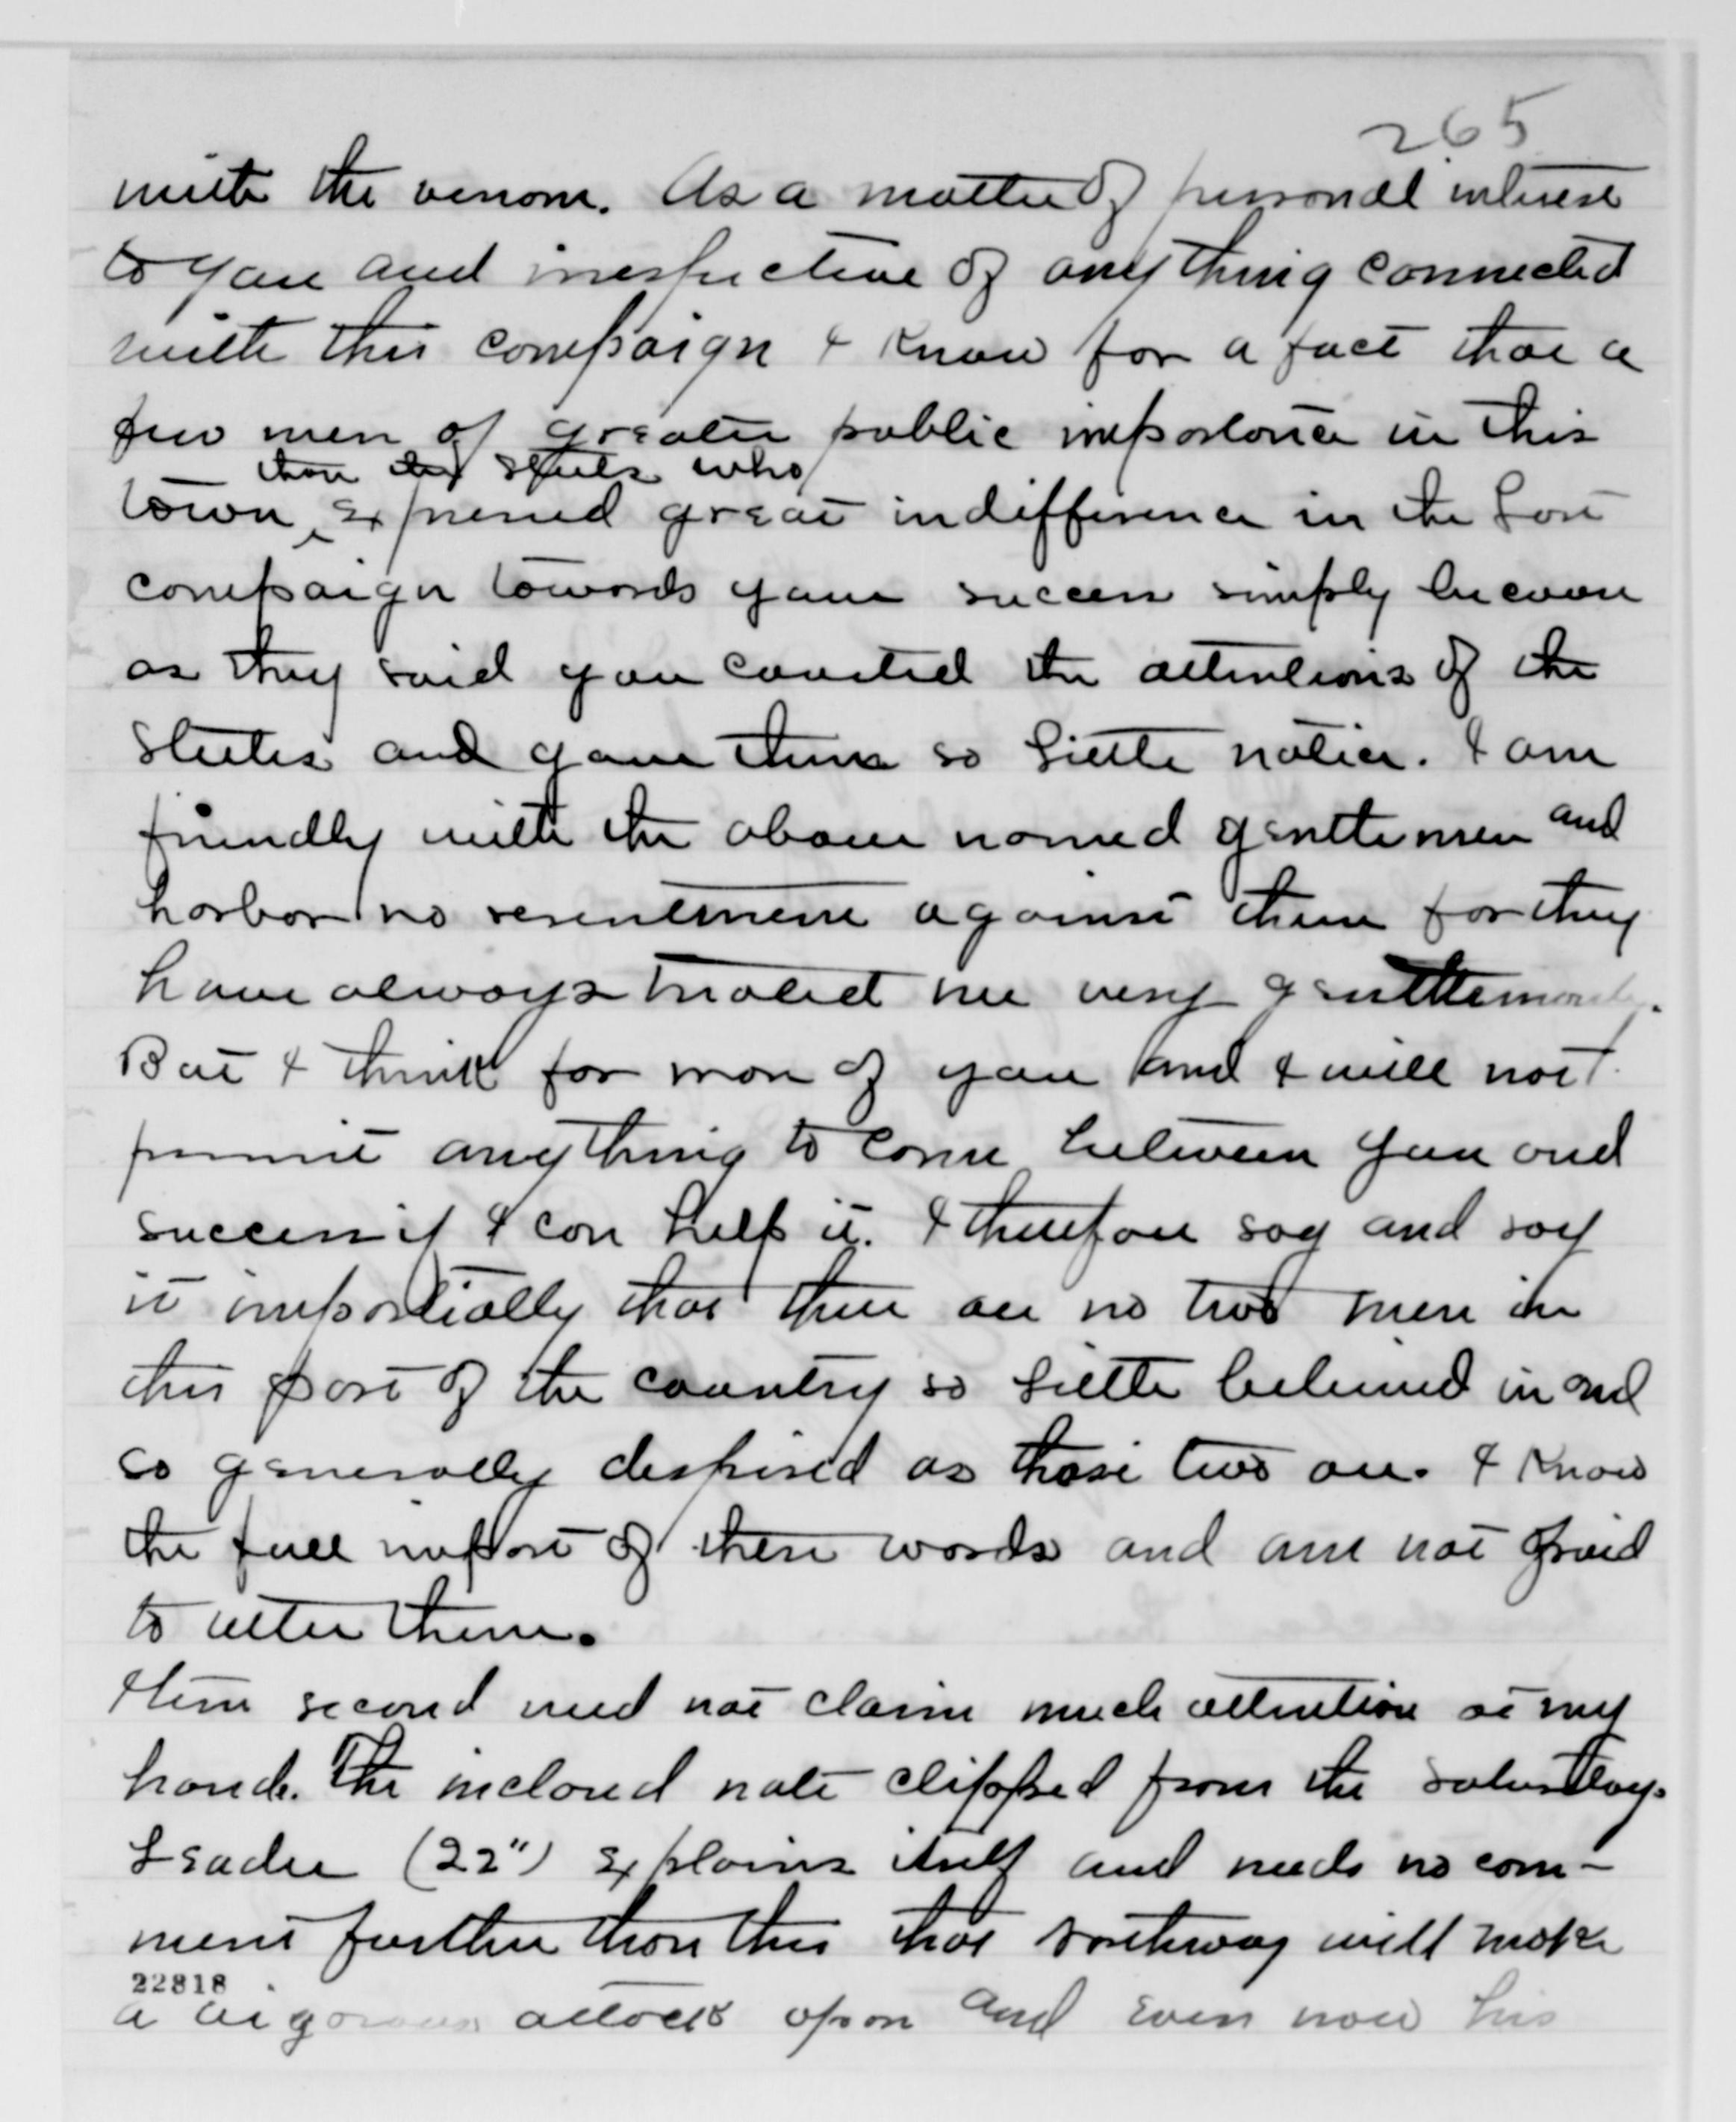 265
with the venom. As a matter of personal interest
to you and irrespective of anything connected
with this campaign I know for a fact that a
few men of greater public importance in this
than the Steels who
town expressed great indifference in the last
campaign towards your success simply because
as they said you courted the attentions of the
Steeles and gave them so little notice. I am
friendly with the above named gentlemen and
harbor no resentment against them for they
have always treated me very gentlemanly.
But I think far more of you and I will not
permit anything to come between you and
success if I can help it. I therefore say and say
it impartially that there are no two men in
this part of the country so little believed in and
so generally despised as those two are. I know
the full import of these words and am not afraid
to utter them.
Item second need not claim much attention at my
hands. The inclosed note clipped from the Saturdays
Leader (22") explains itself and needs no com-
ment further than this that Southway will make
22818
a vigorous attack upon and even now his